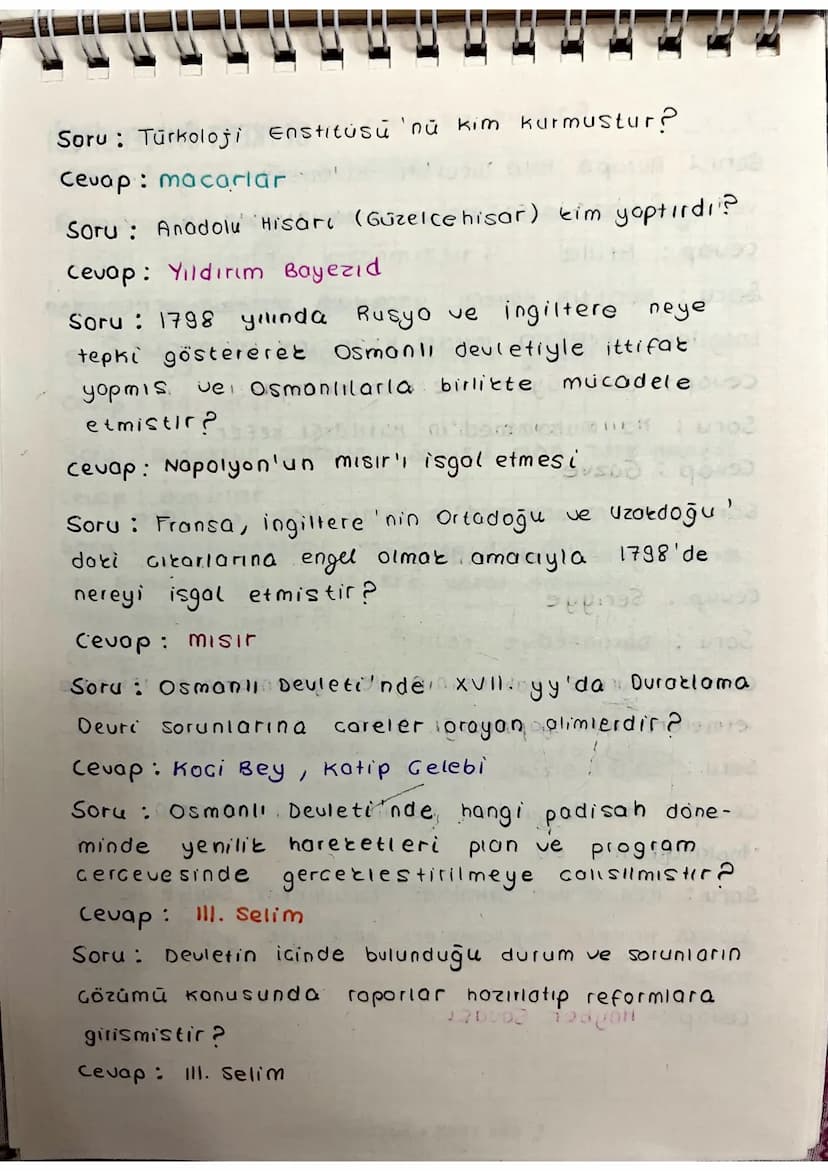 Soru : Türkoloji Enstitüsü'nü kim kurmustur?
Cevap : macarlar
Soru : Anadolu Hisarı (Güzelcehisar) kim yaptırdı?
Cevap : Yıldırım Bayezıd
Soru : 1798 yılında Rusya ve ingiltere neye
tepki göstererek Osmanlı devletiyle ittifak
yapmıs ve Osmanlılarla birlikte mücadele
etmistir?
Cevap : Napolyon'un mısır'ı isgal etmesi
Soru : Fransa, ingiltere'nin Ortadoğu ve Uzakdoğu'
daki cıkarlarına engel olmak amacıyla 1798'de
nereyi isgal etmistir?
Cevap : mısır
Soru : Osmanlı Devleti'nde XVII. yy'da Duraklama
Devri sorunlarına careler arayan alimlerdir?
Cevap : Koci Bey, Katip Celebi
Soru : Osmanlı Devleti'nde hangi padisah döne-
minde yenilik hareketleri plan ve program
cercevesinde gerceklestirilmeye calısılmıstır?
Cevap : III. Selim
Soru : Devletin icinde bulunduğu durum ve sorunların
cözümü konusunda raporlar hazırlatıp reformlara
girismistir?
Cevap : III. Selim